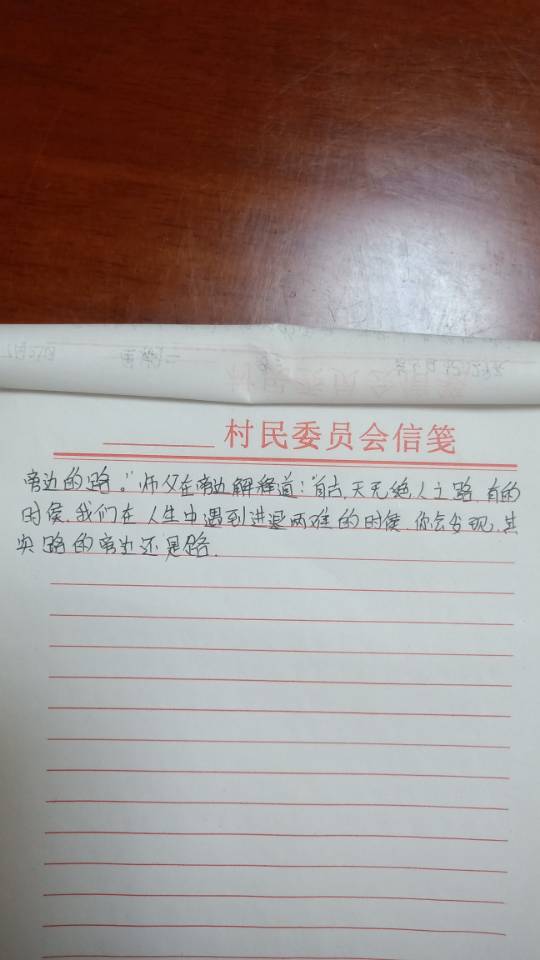 村民委员会信笺
旁边的路。”师父在旁边解释道：首先，天无绝人之路，有的
时候，我们在人生中遇到进退两难的时候，你会发现，其
实路的旁边还是路.